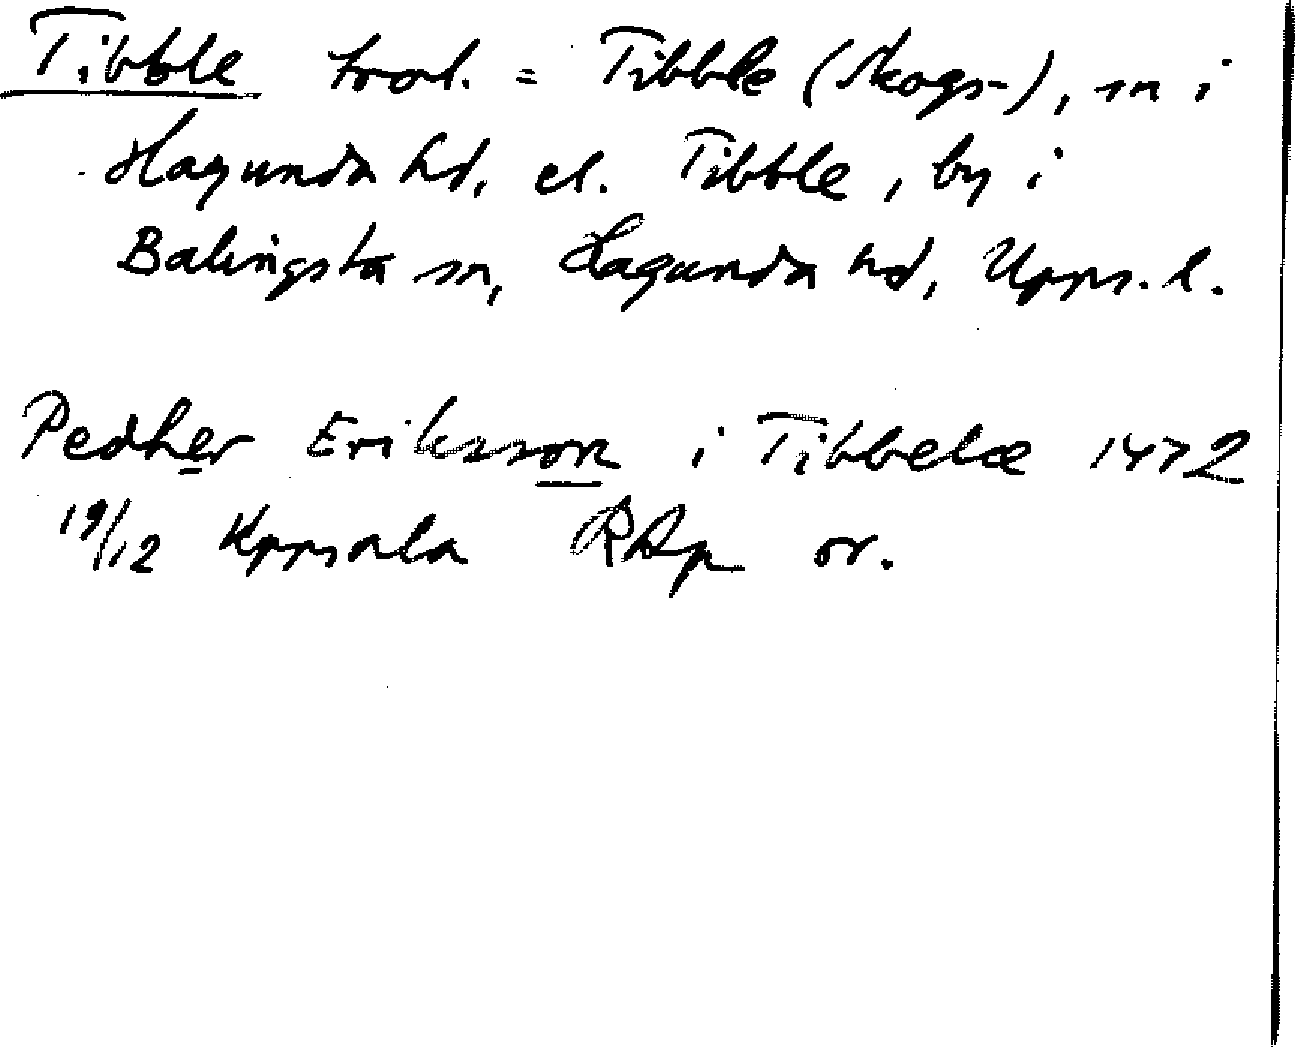 Tibble trol. = Tibble (Skogs-), sn i
Hagunda hd, el. Tibble, by i
Balingsta sn, Hagunda hd, Upps. l.
Pedher Eriksson i Tibbelæ 1472
19/12 Uppsala RAp or.